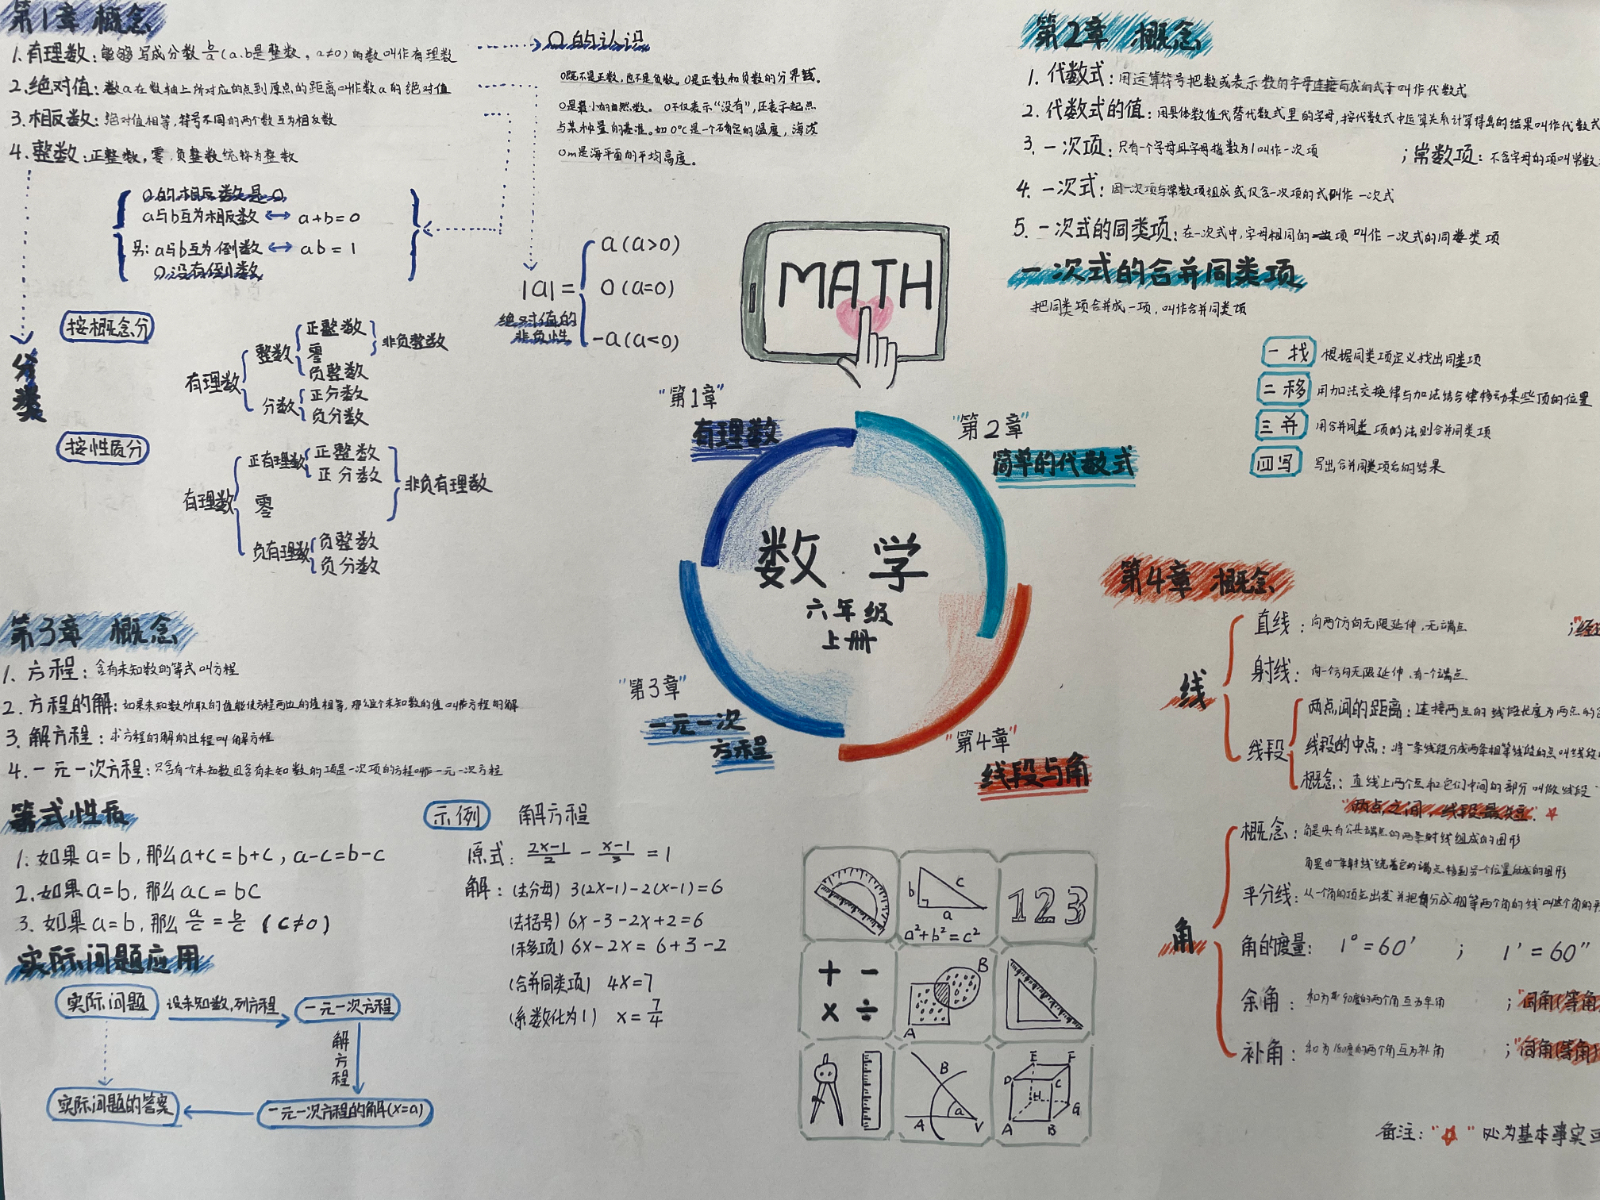 第1章 概念
1.有理数：能够写成分数 b/a（a、b是整数，a≠0）的数叫作有理数
2.绝对值：数a在数轴上所对应的点到原点的距离叫作数a的绝对值
3.相反数：绝对值相等，符号不同的两个数互为相反数
4.整数：正整数，零，负整数统称为整数
0的认识
0既不是正数，也不是负数。0是正数和负数的分界线。
0是最小的自然数。0不仅表示“没有”，还表示起点
与某种量的基准。如0℃是一个确定的温度，海拔
0m是海平面的平均高度。
0的相反数是0
a与b互为相反数 ↔ a+b=0
另：a与b互为倒数 ↔ ab=1
0没有倒数
|a|=
a(a>0)
0(a=0)
-a(a<0)
绝对值的
非负性
分类
按概念分
有理数
整数
正整数
零
负整数
非负整数
分数
正分数
负分数
按性质分
有理数
正有理数
正整数
正分数
零
非负有理数
负有理数
负整数
负分数
MATH
第2章 概念
1.代数式：用运算符号把数或表示数的字母连接而成的式子叫作代数式
2.代数式的值：用具体数值代替代数式里的字母，按代数式中运算关系计算得出的结果叫作代数式
3.一次项：只有一个字母且字母指数为1叫作一次项；常数项：不含字母的项叫常数
4.一次式：因一次项与常数项组成或仅含一次项的式叫作一次式
5.一次式的同类项：在一次式中，字母相同的一次项叫作一次式的同类项
一次式的合并同类项
把同类项合并成一项，叫作合并同类项
一找 根据同类项定义找出同类项
二移 用加法交换律与加法结合律移动某些项的位置
三并 用合并同类项的法则合并同类项
四写 写出合并同类项后的结果
“第1章”
有理数
“第2章”
简单的代数式
数学
六年级
上册
“第3章”
一元一次
方程
“第4章”
线段与角
第3章 概念
1.方程：含有未知数的等式叫方程
2.方程的解：如果未知数所取的值能使方程两边的值相等，那么这个未知数的值叫作方程的解
3.解方程：求方程的解的过程叫解方程
4.一元一次方程：只含有一个未知数且含有未知数的项是一次项的方程叫作一元一次方程
等式性质
1.如果a=b，那么a+c=b+c，a-c=b-c
2.如果a=b，那么ac=bc
3.如果a=b，那么 a/c=b/c (c≠0)
实际问题应用
实际问题
设未知数，列方程
一元一次方程
解方程
一元一次方程的解(x=a)
实际问题的答案
示例 解方程
原式：(2x-1)/2 - (x-1)/3 = 1
解：(去分母) 3(2x-1)-2(x-1)=6
(去括号) 6x-3-2x+2=6
(移项) 6x-2x=6+3-2
(合并同类项) 4x=7
(系数化为1) x=7/4
b c
a
a²+b²=c²
123
+ -
× ÷
A B
B
A a V
E F
D C
H G
A B
第4章 概念
线
直线：向两个方向无限延伸，无端点
射线：向一个方向无限延伸，有一个端点
线段
两点间的距离：连接两点的线段长度为两点的
线段的中点：将一条线段分成两条相等线段的点叫线段
概念：直线上两个点和它们中间的部分叫做线段
“两点之间，线段最短。”☆
角
概念：角是具有公共端点的两条射线组成的图形
角是由一条射线绕着它的端点旋转到另一个位置组成的图形
平分线：从一个角的顶点出发并把角分成相等两个角的线叫这个角的平
角的度量：1°=60′；1′=60″
余角：和为90度的两个角互为余角；“同角(等角
补角：和为180度的两个角互为补角；“同角(等角)
备注：“☆”处为基本事实